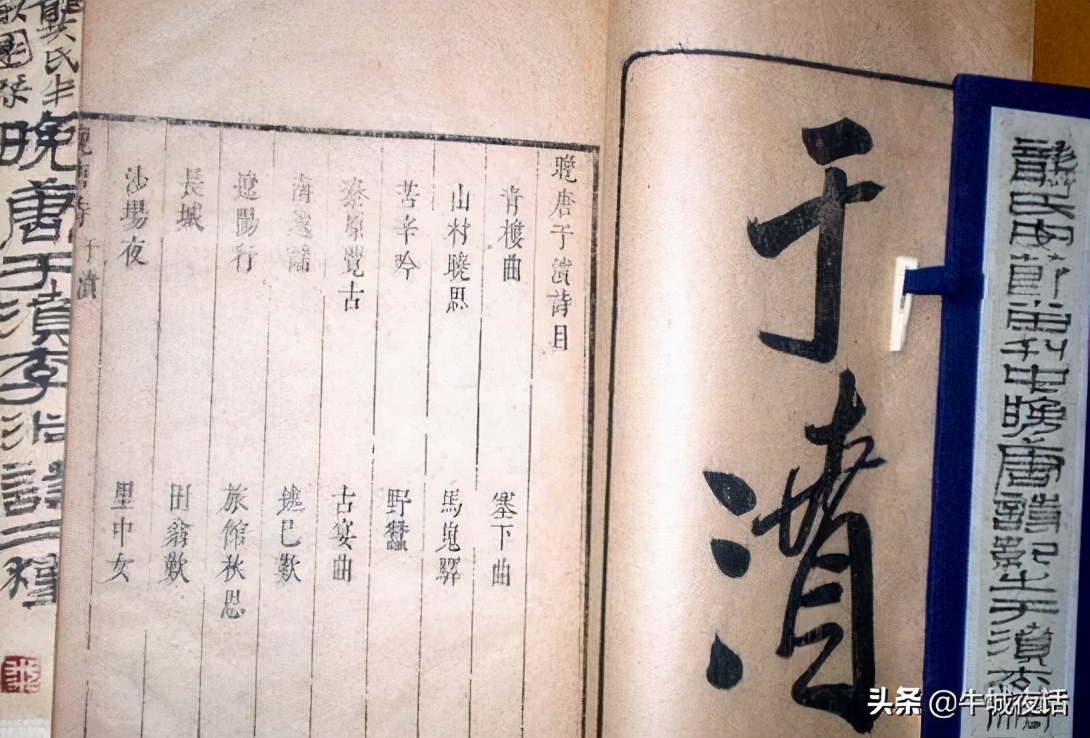 龔氏半畝園刊中晚唐詩紀之于濆李
于濆
晚唐于濆詩目
青樓曲 塞下曲
山村曉思 馬嵬驛
苦辛吟 野蠶
秦原覽古 古宴曲
南越謠 巳歎
遼陽行 旅館秋思
長城 田翁歎
沙場夜 里中女
晚唐詩 于濆
龔氏半
畝園槧
晚唐于濆李沿詩二種
头条 @牛城夜话